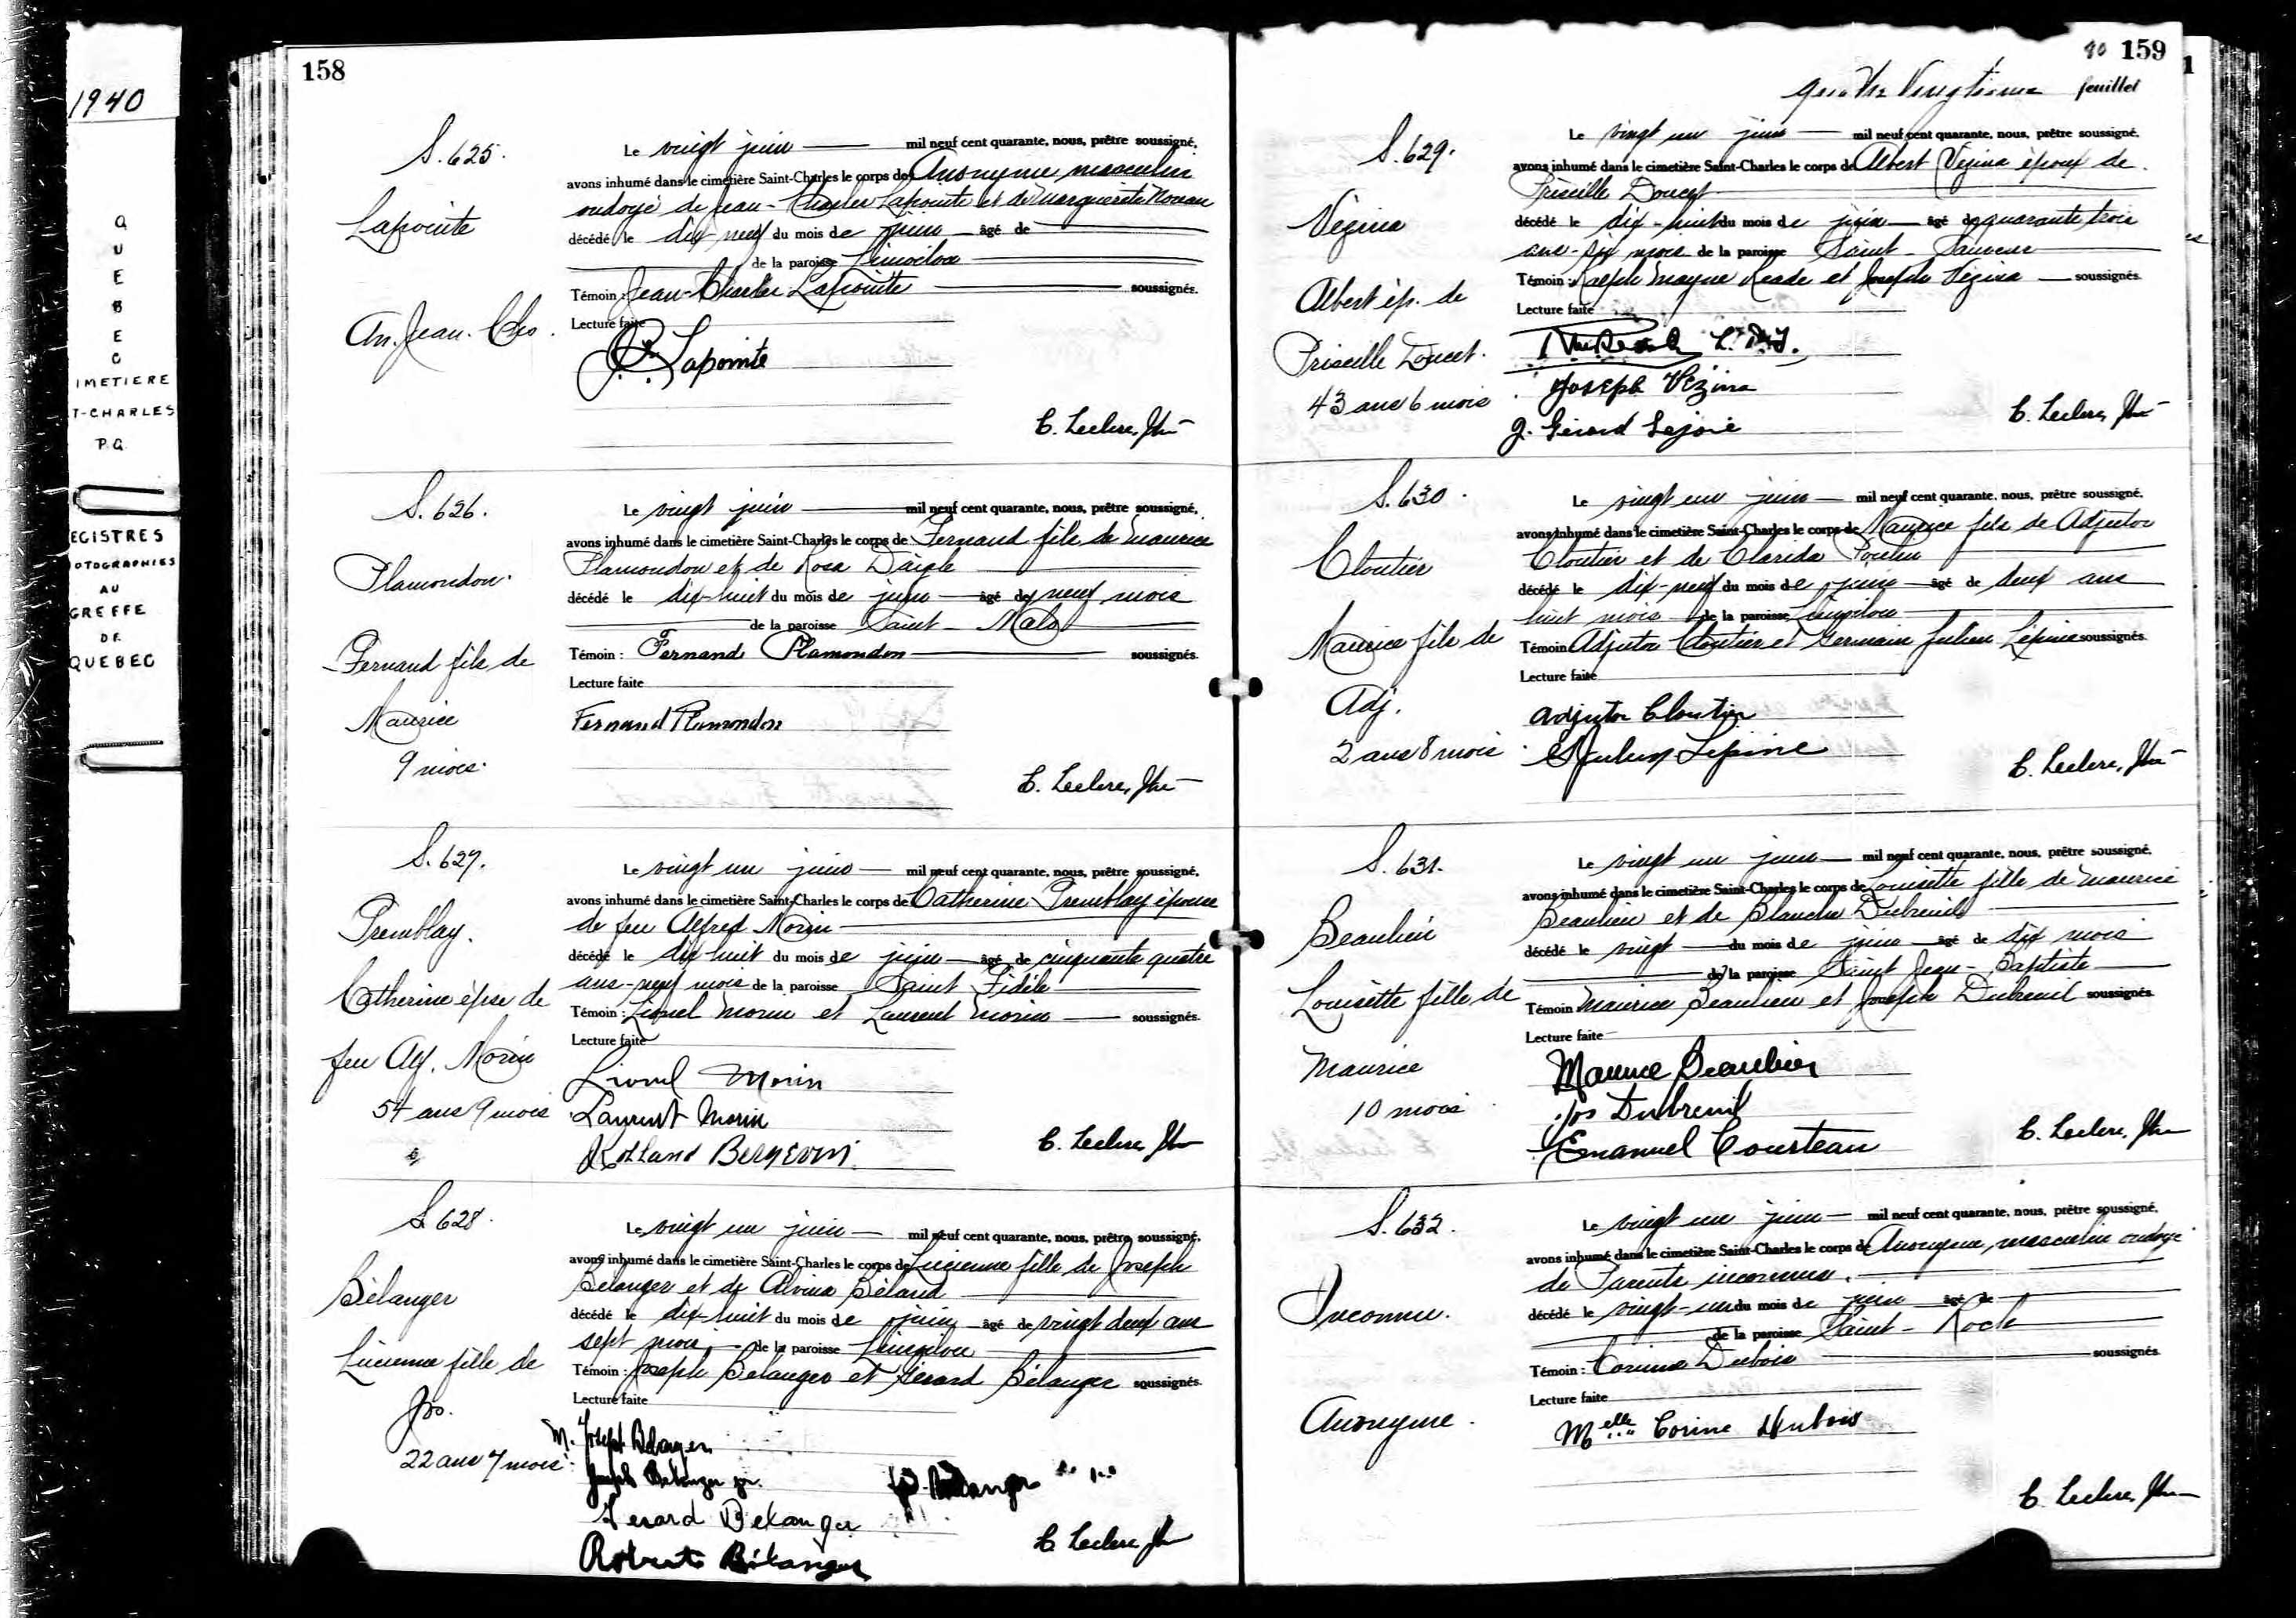 1940
QUEBEC
IMETIERE
T-CHARLES
P.Q.
EGISTRES
OTOGRAPHIES
AU
GREFFE
DE
QUEBEC
158
S. 625.
Lapointe
An. Jean-Chs.
Le vingt juin mil neuf cent quarante, nous, prêtre soussigné,
avons inhumé dans le cimetière Saint-Charles le corps de Anonyme masculin
ondoyé de Jean-Charles Lapointe et de Marguerite
décédé le dix-neuf du mois de juin âgé de
de la paroisse Limoilou
Témoin : Jean-Charles Lapointe soussignés.
Lecture faite
Lapointe
C. Leclerc, Ptre
S. 626.
Plamondon.
Fernand fils de
Maurice
9 mois.
Le vingt juin mil neuf cent quarante, nous, prêtre soussigné,
avons inhumé dans le cimetière Saint-Charles le corps de Fernand fils de Maurice
Plamondon et de Rosa Daigle
décédé le dix-huit du mois de juin âgé de neuf mois
de la paroisse Saint-Malo
Témoin : Fernand Plamondon soussignés.
Lecture faite
Fernand Plamondon
C. Leclerc, Ptre
S. 627.
Tremblay.
Catherine épse de
feu Alf. Morin
54 ans 9 mois
Le vingt un juin mil neuf cent quarante, nous, prêtre soussigné,
avons inhumé dans le cimetière Saint-Charles le corps de Catherine Tremblay épouse
de feu Alfred Morin
décédé le dix huit du mois de juin âgé de cinquante quatre
ans-neuf mois de la paroisse Saint Fidèle
Témoin : Lionel Morin et Laurent Morin soussignés.
Lecture faite
Lionel Morin
Laurent Morin
Rolland Bergevin
C. Leclerc, Ptre
S. 628.
Bélanger
Lucienne fille de
Jos.
22 ans 7 mois.
Le vingt un juin mil neuf cent quarante, nous, prêtre soussigné,
avons inhumé dans le cimetière Saint-Charles le corps de Lucienne fille de Joseph
Bélanger et de Alvina Béland
décédé le dix-huit du mois de juin âgé de vingt deux ans
sept mois de la paroisse Limoilou
Témoin : Joseph Bélanger et Gérard Bélanger soussignés.
Lecture faite
M. Joseph Bélanger
Joseph Bélanger jr.
Bélanger
Gerard Belanger
C. Leclerc, Ptre
Bélanger
90 159
quatre Vingtième feuillet
S. 629.
Vézina
Albert ép. de
Priscille Doucet.
43 ans 6 mois.
Le vingt un juin mil neuf cent quarante, nous, prêtre soussigné,
avons inhumé dans le cimetière Saint-Charles le corps de Albert Vézina époux de
Priscille Doucet
décédé le dix-huit du mois de juin âgé de quarante trois
ans-six mois de la paroisse Saint-Sauveur
Témoin : Ralph Mayne Reade et Joseph Vézina soussignés.
Lecture faite
Joseph Vézina
J. Gérard Lajoie
C. Leclerc, Ptre
S. 630.
Cloutier
Maurice fils de
Adj.
2 ans 8 mois
Le vingt un juin mil neuf cent quarante, nous, prêtre soussigné,
avons inhumé dans le cimetière Saint-Charles le corps de Maurice fils de Adjutor
Cloutier et de Clarida
décédé le dix-neuf du mois de juin âgé de deux ans
huit mois de la paroisse Limoilou
Témoin Adjutor Cloutier et Germain Julien Lépine soussignés.
Lecture faite
Adjutor Cloutier
Julien Lepine
C. Leclerc, Ptre
S. 631.
Beaulieu
Louisette fille de
Maurice
10 mois
Le vingt un juin mil neuf cent quarante, nous, prêtre soussigné,
avons inhumé dans le cimetière Saint-Charles le corps de Louisette fille de Maurice
Beaulieu et de Blanche Dubreuil
décédé le vingt du mois de juin âgé de dix mois
de la paroisse Saint Jean-Baptiste
Témoin Maurice Beaulieu et Joseph Dubreuil soussignés.
Lecture faite
Maurice Beaulieu
Jos Dubreuil
Emanuel Courteau
C. Leclerc, Ptre
S. 632.
Inconnu.
Anonyme.
Le vingt un juin mil neuf cent quarante, nous, prêtre soussigné,
avons inhumé dans le cimetière Saint-Charles le corps de Anonyme, masculin ondoyé
de Parents inconnus.
décédé le vingt-un du mois de juin âgé de
de la paroisse Saint-Roch
Témoin : Corinne Dubois soussignés.
Lecture faite
Melle Corine Dubois
C. Leclerc, Ptre